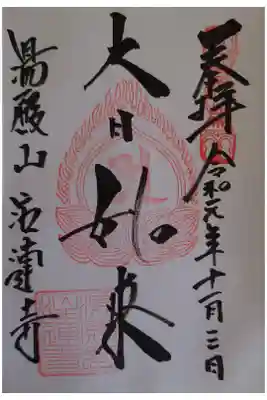 奉拝 令和元年十一月三日
大日如来
湯殿山 寺